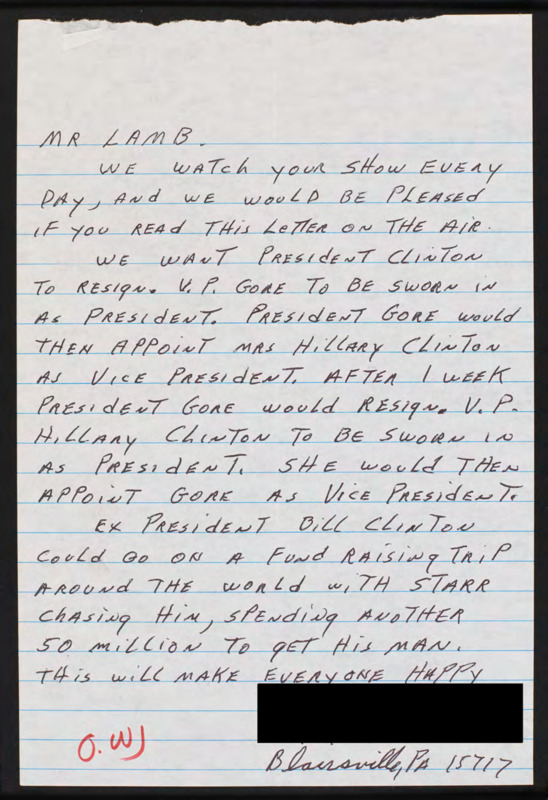 MR LAMB.
WE WATCH YOUR SHOW EVERY
DAY, AND WE WOULD BE PLEASED
IF YOU READ THIS LETTER ON THE AIR.
WE WANT PRESIDENT CLINTON
TO RESIGN. V.P. GORE TO BE SWORN IN
AS PRESIDENT. PRESIDENT GORE WOULD
THEN APPOINT MRS HILLARY CLINTON
AS VICE PRESIDENT. AFTER 1 WEEK
PRESIDENT GORE WOULD RESIGN. V.P.
HILLARY CLINTON TO BE SWORN IN
AS PRESIDENT. SHE WOULD THEN
APPOINT GORE AS VICE PRESIDENT.
EX PRESIDENT BILL CLINTON
COULD GO ON A FUND RAISING TRIP
AROUND THE WORLD WITH STARR
CHASING HIM, SPENDING ANOTHER
50 MILLION TO GET HIS MAN.
THIS WILL MAKE EVERYONE HAPPY
Blairsville, PA 15717